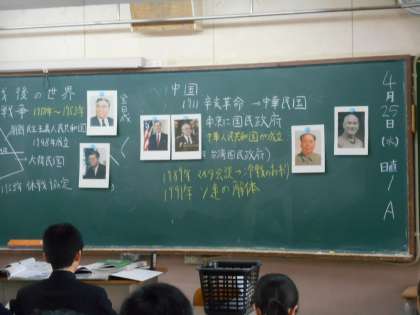 後の世界
戦争 1950年〜1953年
朝鮮民主主義人民共和国
1948年成立
大韓民国
1953年 休戦協定
中国
1911 辛亥革命 → 中華民国
国民政府
中華人民共和国が成立
台湾国民政府)
1989年 マルタ会談 → 冷戦のおわり
1991年 ソ連の解体
4月25日(水)
日直
1
A